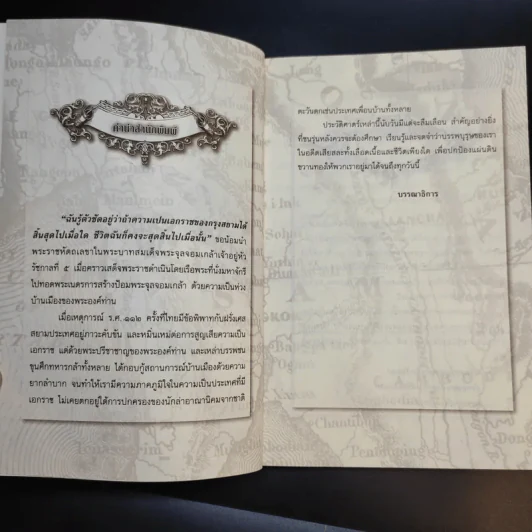 คำนำสำนักพิมพ์
"ฉันรู้ตัวชัดอยู่ว่าถ้าความเปนเอกราชของกรุงสยามได้
สิ้นสุดไปเมื่อใด ชีวิตฉันก็คงจะสุดสิ้นไปเมื่อนั้น" ขอน้อมนำ
พระราชหัตถเลขาในพระบาทสมเด็จพระจุลจอมเกล้าเจ้าอยู่หัว
รัชกาลที่ ๕ เมื่อคราวเสด็จพระราชดำเนินโดยเรือพระที่นั่งมหาจักรี
ไปทอดพระเนตรการสร้างป้อมพระจุลจอมเกล้า ด้วยความเป็นห่วง
บ้านเมืองของพระองค์ท่าน
เมื่อเหตุการณ์ ร.ศ. ๑๑๒ ครั้งที่ไทยมีข้อพิพาทกับฝรั่งเศส
สยามประเทศอยู่ภาวะคับขัน และหมิ่นเหม่ต่อการสูญเสียความเป็น
เอกราช แต่ด้วยพระปรีชาชาญของพระองค์ท่าน และเหล่าบรรพชน
ขุนศึกทหารกล้าทั้งหลาย ได้กอบกู้สถานการณ์บ้านเมืองด้วยความ
ยากลำบาก จนทำให้เรามีความภาคภูมิใจในความเป็นประเทศที่มี
เอกราช ไม่เคยตกอยู่ใต้การปกครองของนักล่าอาณานิคมจากชาติ
ตะวันตกเช่นประเทศเพื่อนบ้านทั้งหลาย
ประวัติศาสตร์เหล่านี้นับวันมีแต่จะลืมเลือน สำคัญอย่างยิ่ง
ที่ชนรุ่นหลังควรจะต้องศึกษา เรียนรู้และจดจำว่าบรรพบุรุษของเรา
ในอดีตเสียสละทั้งเลือดเนื้อและชีวิตเพียงใด เพื่อปกป้องแผ่นดิน
ขวานทองให้พวกเราอยู่มาได้จนถึงทุกวันนี้
บรรณาธิการ